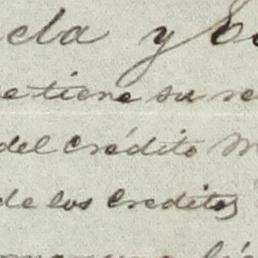 cla y
e tiene su re
del Crédito M
de los Creditos